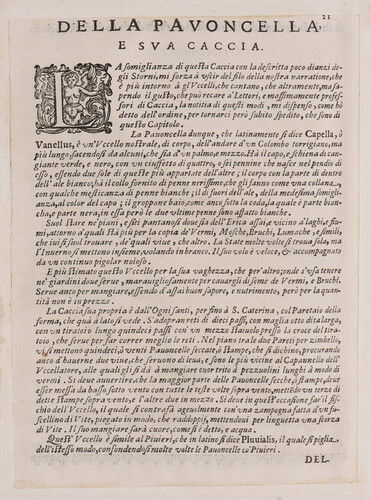 21
DELLA PAVONCELLA,
E SVA CACCIA.
LA somiglianza di questa Caccia con la descritta poco dianzi de
gli Storni, mi forza à vscir del filo della nostra narratione, che
è più intorno à gl'Vccelli, che cantano, che altramente, ma sa-
pendo il gusto, che può recare a' Lettori, e massimamente profes-
sori di Caccia, la notitia di questi modi, mi dispenso, come hò
detto dell'ordine, per tornarci però subito spedito, che sono di
questo Capitolo.
La Pauoncella dunque, che latinamente si dice Capella, ò
Vanellus, è vn'Vccello nostrale, di corpo, dell'andare d'vn Colombo torrigiano, ma
più lungo facendosi da alcuni, che sia d'vn palmo, e mezzo. Hà il capo, e schiena di can-
giante verde, e nero, con vn ciuffetto di quattro, o sei pennine che nasce nel pendio di
esso, essendo due sole di queste più appartate dell'altre; il corpo con la parte di dentro
dell'ale bianco, hà il collo fornito di penne nerissime, che gli fanno come vna collana,
con qualche mesticanza di penne bianche; il di fuori dell'ale, della medesima somigli-
anza, al color del capo; il groppone baio, come anco sotto la coda, la quale è parte bian-
cha, e parte nera, in essa però le due vltime penne sono affatto bianche.
Suol stare ne' piani, e siti pantanosi doue sia dell'Erica assai, e vicino a' laghi, e fiu-
mi, attorno a' quali stà più per la copia de' Vermi, Mosche, Bruchi, Lumache, e simili,
che iui si suol trouare, de' quali viue, che altro. La State molte volte si troua sola, ma
l'Inuerno si mettono insieme, volando in branco. Il suo volo è veloce, & accompagnato
da vn continuo pigolar noioso.
E più stimato questo Vccello per la sua vaghezza, che per altro; onde s'vsa tenere
ne' giardini doue serue, marauigliosamente per cauargli di seme de' Vermi, e Bruchi.
Serue anco per mangiare, essendo d'assai buon sapore, e nutrimento, però per la quan-
tità non è in prezzo.
La Caccia sua propria è dall'Ogni santi, per fino à S. Caterina, col Paretaio della
forma, che quà à lato si vede. S'adopran reti di dieci passi, con maglia otto dita larga,
con vn tiratoio lungo quindeci passi con vn mezzo stauolo presso la croce del tira-
toio, che serue per far correr meglio le reti. Nel piano tra le due Pareti per zimbello,
vi si mettono quindeci, ò venti Pauoncelle seccate, ò stampe, che si dichino, procurando
anco d'hauerne due viue, che seruono di leua, e sono le più vicine al Capannello dell'
Vccellatore, alle quali gli si dà à mangiare cuor trito à pezzolini lunghi à modo di
vermi. Si deue auuertire che la maggior parte delle Pauoncelle secche, ò stampe, deue
esser messa da basso sotto vento con tutte le teste volte sopra vento, mettendo vn terzo di
dette stampe sopra vento, e l'altre due in mezzo. Si dee in quest'occasione far il fi-
schio dell'Vccello, il quale si contrafà ageuolmente con vna zampogna fatta d'vn fu-
scellino di Vite, piegato in modo, che raddoppij, mettendoui per linguetta vna scorza
di Vite. Il suo mangiare sarà cuore, come si è detto, e acqua.
Quest'Vccello è simile al Piuieri, che in latino si dice Pluuialis, il quale si piglia
dell'istesso modo, confondendosi molte volte le Pauoncelle co' Piuieri.
DEL.